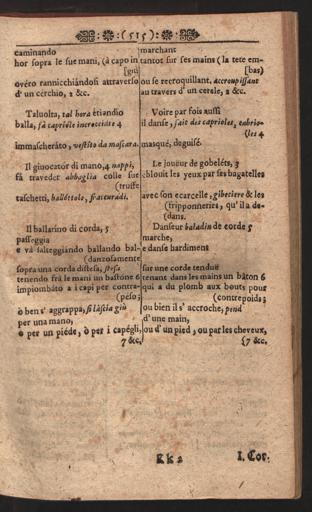 (515)
caminando
hor sopra le sue mani, (à capo in
[giù
ovéro rannicchiándosi attraverso
d'un cérchio, 2 &c.
Taluolta, tal hora étiandio
balla, fà capriole incrocciate 4
immascheráto, vestito da máscara.
Il giuocatór di mano, 4
fà travedér abbaglia colle sue
(truffe
taschetti,
Il ballarino di corda, 5
passéggia
e và salteggiándo ballándo bal-
(danzosaménte
sopra una corda distesa, stesa
tenéndo frà le mani un bastóne 6
impiombáto a i capi per contra-
(péso;
ò ben s'aggrappa, si láscia giù
per una mano,
o per un piéde, ò per i capégli,
7 &c.
marchant
tantôt sur ses mains (la tete em-
[bas)
ou se recroquillant, accroupissant
au travers d'un cercle, 2 &c.
Voire par fois aussi
il danse, fait des caprioles, cabrio-
(les 4
masqué, deguisé.
Le joueur de gobelets, 3
eblouit les yeux par ses bagatelles
avec son ecarcelle, gibeciere & les
(fripponneries, qu'il a de-
(dans.
Danseur baladin de corde 5
marche,
e danse hardiment
sur une corde tenduë
tenant dans les mains un bâton 6
qui a du plomb aux bouts pour
(contrepoids;
ou bien il s'accroche, pend
d'une main,
ou d'un pied, ou par les cheveux,
{7 &c.
Kk 2
I. Cor.